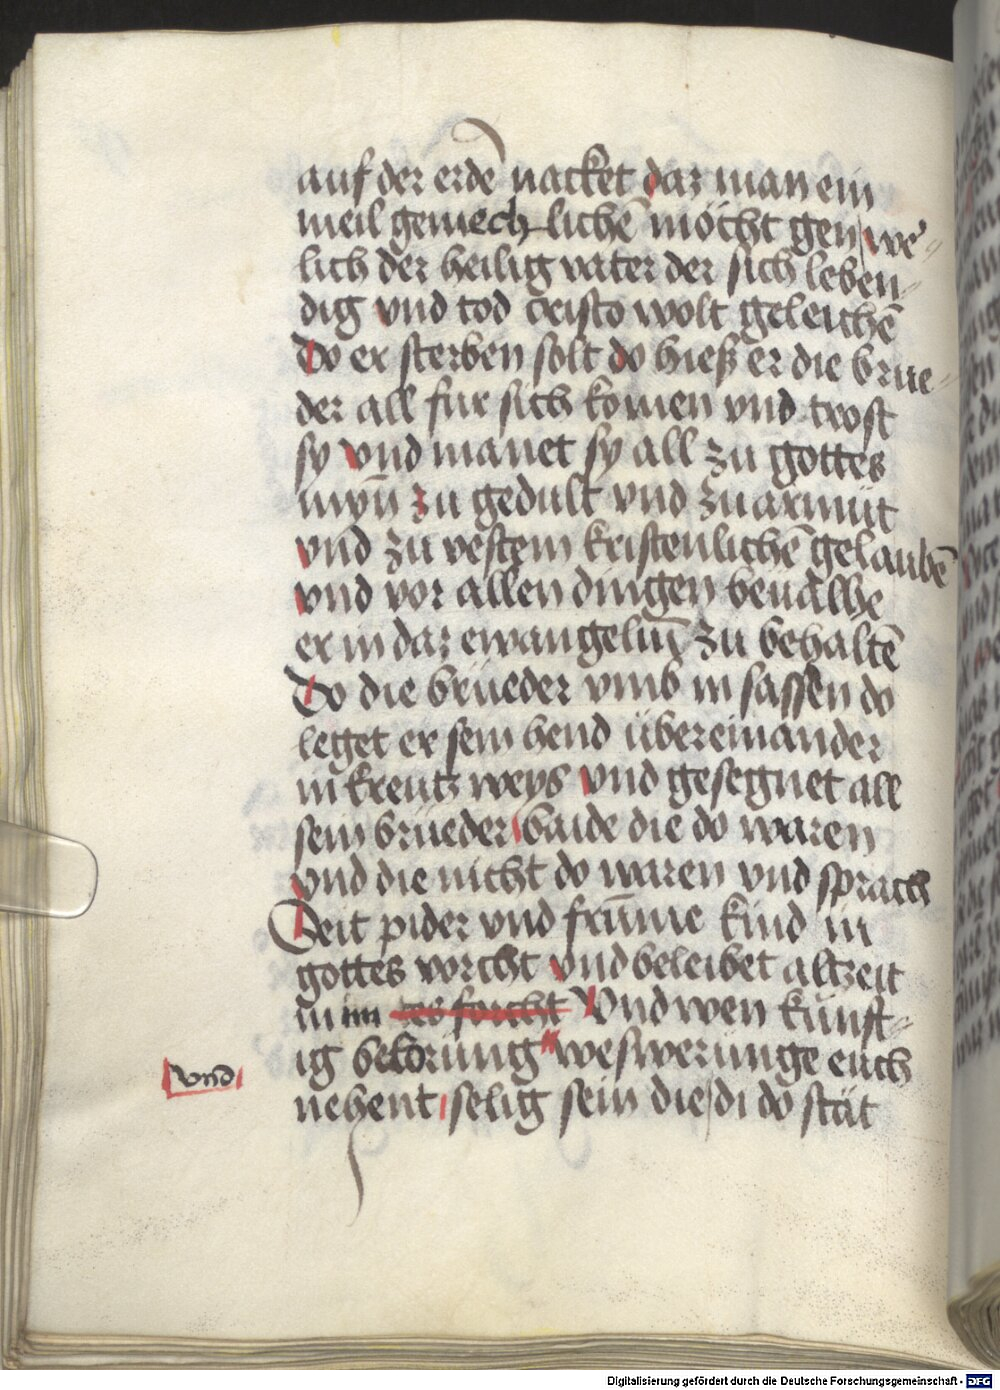 auf der erdē nacket daz man ein
meil gemechlichē möcht gen we
lich der heilig vater der sich leben
dig vnd tod cristo wolt geleichē
Do er sterben solt do hieß er die brue
der all fur sich komen vnd trost
sy vnd manet sy all zu gottes
mȳn zu gedult vnd zu armüt
vnd zu vestem kristenlichē gelaubē
vnd vor allen dingen beualhe
er in daz ewangeliū zu behaltē
Do die brüeder vmb in sassen do
leget er sein hend übereinander
in kreutz weys vnd gesegnet all
sein brüeder baide die do waren
vnd die nicht do waren vnd sprach
Seit pider vnd frūme kind in
gottes vorcht vnd beleibet altzeit
in im Vnd wen künft
ig bekorung weswerunge euch
vnd
nehent selig sein die di do stät
Digitalisierung gefördert durch die Deutsche Forschungsgemeinschaft - DFG